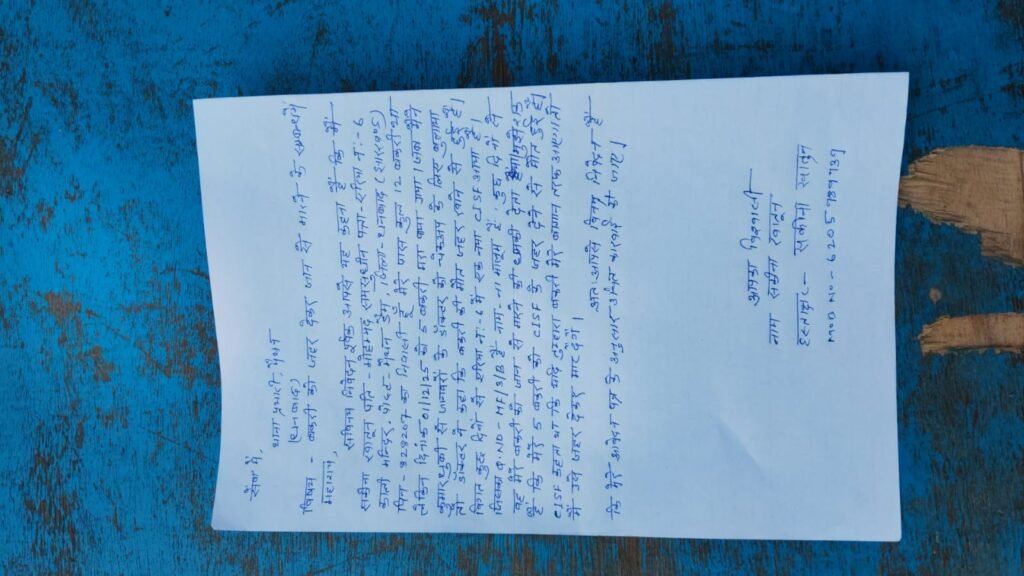 सेवा में,
थाना प्रभारी, मैथन
(धनबाद)
विषय - बकरी को जहर देकर जान से मारने के सम्बन्ध में
महाशय,
सविनय निवेदन पूर्वक आपसे यह कहना है कि मैं
सकीना खातून पति - मोहम्मद समसुद्दीन पता - एरिया नं:- 6
काली मन्दिर, पो॰+था॰ मैथन डैम जिला - धनबाद (झारखण्ड)
पिन - 828207 का निवासी हूँ मेरे पास कुल 12 बकरी था
लेकिन दिनांक 01/12/25 को 5 बकरी मारा गया जब मैंने
जानवरों के डाक्टर को के लिए बुलाया
तो डाक्टर ने कहा कि बकरी की मौत जहर खाने से हुई है।
विगत कुछ दिनों से एरिया नं:- 6 में एक नया CISF आया है।
जिसका Q.NO - MF/3/B है नाम - ना मालूम है, कुछ दिनों से
वह मेरे बकरी को जान से मारने की धमकी देता
है कि मेरे 5 बकरी की CISF के जहर देने से मौत हुई है।
CISF कहता था कि यदि दुबारा बकरी मेरे बागान तरफ आएगा तो
मैं उसे जहर देकर मार देंगे।
अतः आपसे विनम्र निवेदन है
कि मेरे आवेदन पत्र के अनुसार उचित कारवाई की जाए।
आपका शुभचिंतक
नाम सकीना खातून
हस्ताक्षर - सकीना खातून
MOB NO - 6205789739